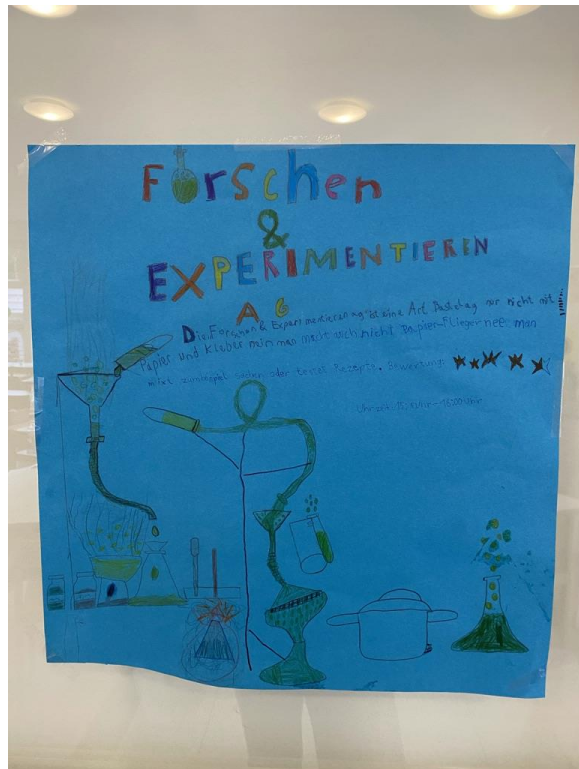 Forschen
&
EXPERIMENTIEREN
AG
Die Forschen & Experimentieren ag ist eine Art Basteltag nur nicht mit
Papier und Kleber man macht auch nicht Papier-Flieger nee man
oder testet Rezepte. Bewertung: